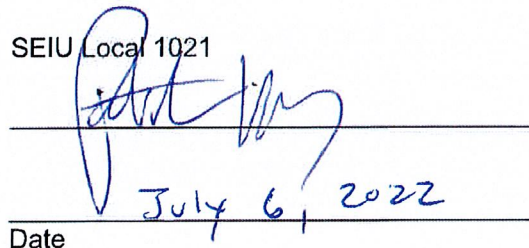 SEIU Local 1021
July 6, 2022
Date